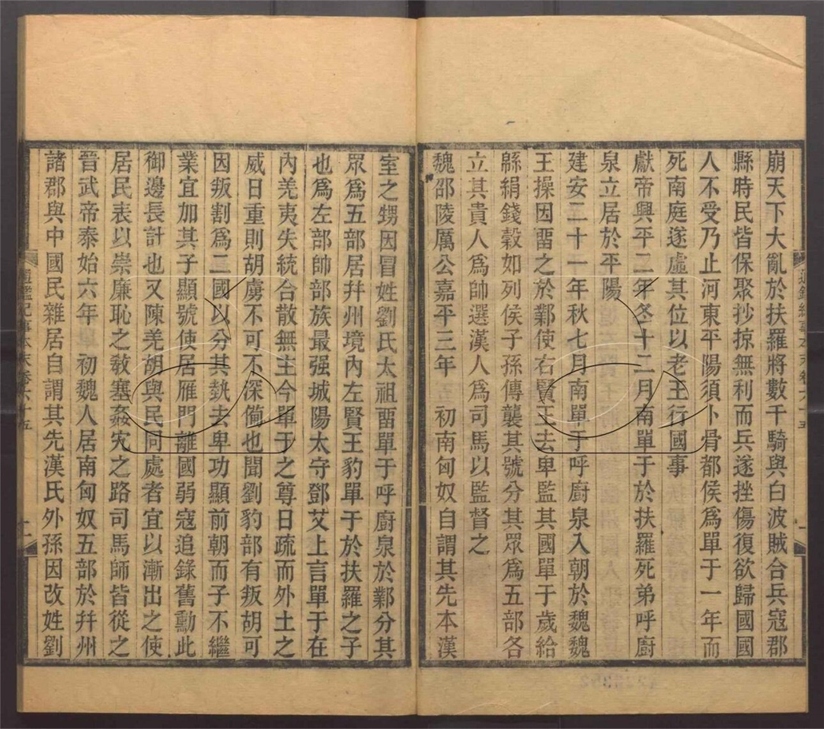 崩天下大亂於扶羅將數千騎與白波賊合兵寇郡
縣時民皆保聚抄掠無利而兵遂挫傷復欲歸國國
人不受乃止河東平陽須卜骨都侯爲單于一年而
死南庭遂虛其位以老王行國事
獻帝興平二年冬十二月南單于於扶羅死弟呼廚
泉立居於平陽
建安二十一年秋七月南單于呼廚泉入朝於魏魏
王操因畱之於鄴使右賢王去卑監其國單于歲給
緜絹錢穀如列侯子孫傳襲其號分其眾爲五部各
立其貴人爲帥選漢人爲司馬以監督之
魏邵陵厲公嘉平三年 初南匈奴自謂其先本漢
室之甥因冒姓劉氏太祖畱單于呼廚泉於鄴分其
眾爲五部居幷州境內左賢王豹單于於扶羅之子
也爲左部帥部族最强城陽太守鄧艾上言單于在
內羌夷失統合散無主今單于之尊日疏而外土之
威日重則胡虜不可不深備也聞劉豹部有叛胡可
因叛割爲二國以分其埶去卑功顯前朝而子不繼
業宜加其子顯號使居雁門離國弱寇追錄舊勳此
御邊長計也又陳羌胡與民同處者宜以漸出之使
居民表以崇廉恥之敎塞姦宄之路司馬師皆從之
晉武帝泰始六年 初魏人居南匈奴五部於幷州
諸郡與中國民雜居自謂其先漢氏外孫因改姓劉
通鑑紀事本末卷六十五